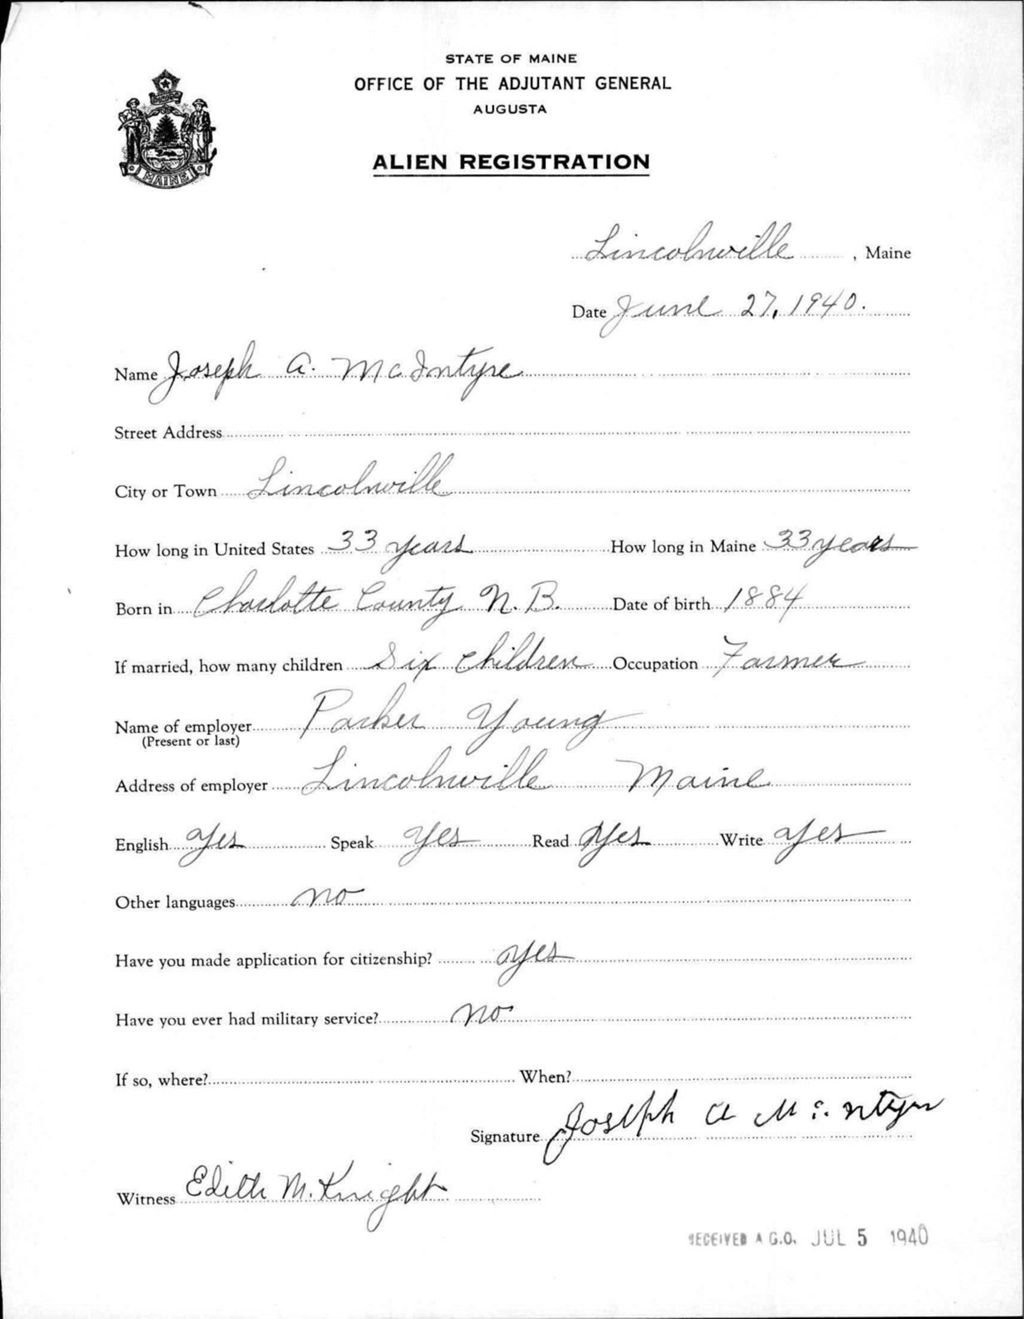 STATE OF MAINE
OFFICE OF THE ADJUTANT GENERAL
AUGUSTA
MAINE
ALIEN REGISTRATION
Lincolnville, Maine
Date June 27, 1940.
Name Joseph A. McIntyre
Street Address
City or Town Lincolnville
How long in United States 33 years How long in Maine 33 years
Born in Charlotte County N.B. Date of birth 1884
If married, how many children Six children Occupation Farmer
Name of employer Parker Young
(Present or last)
Address of employer Lincolnville Maine
English Yes Speak Yes Read Yes Write Yes
Other languages no
Have you made application for citizenship? yes
Have you ever had military service? no
If so, where? When?
Signature Joseph A McIntyre
Witness Edith M. Knight
RECEIVED A.G.O. JUL 5 1940